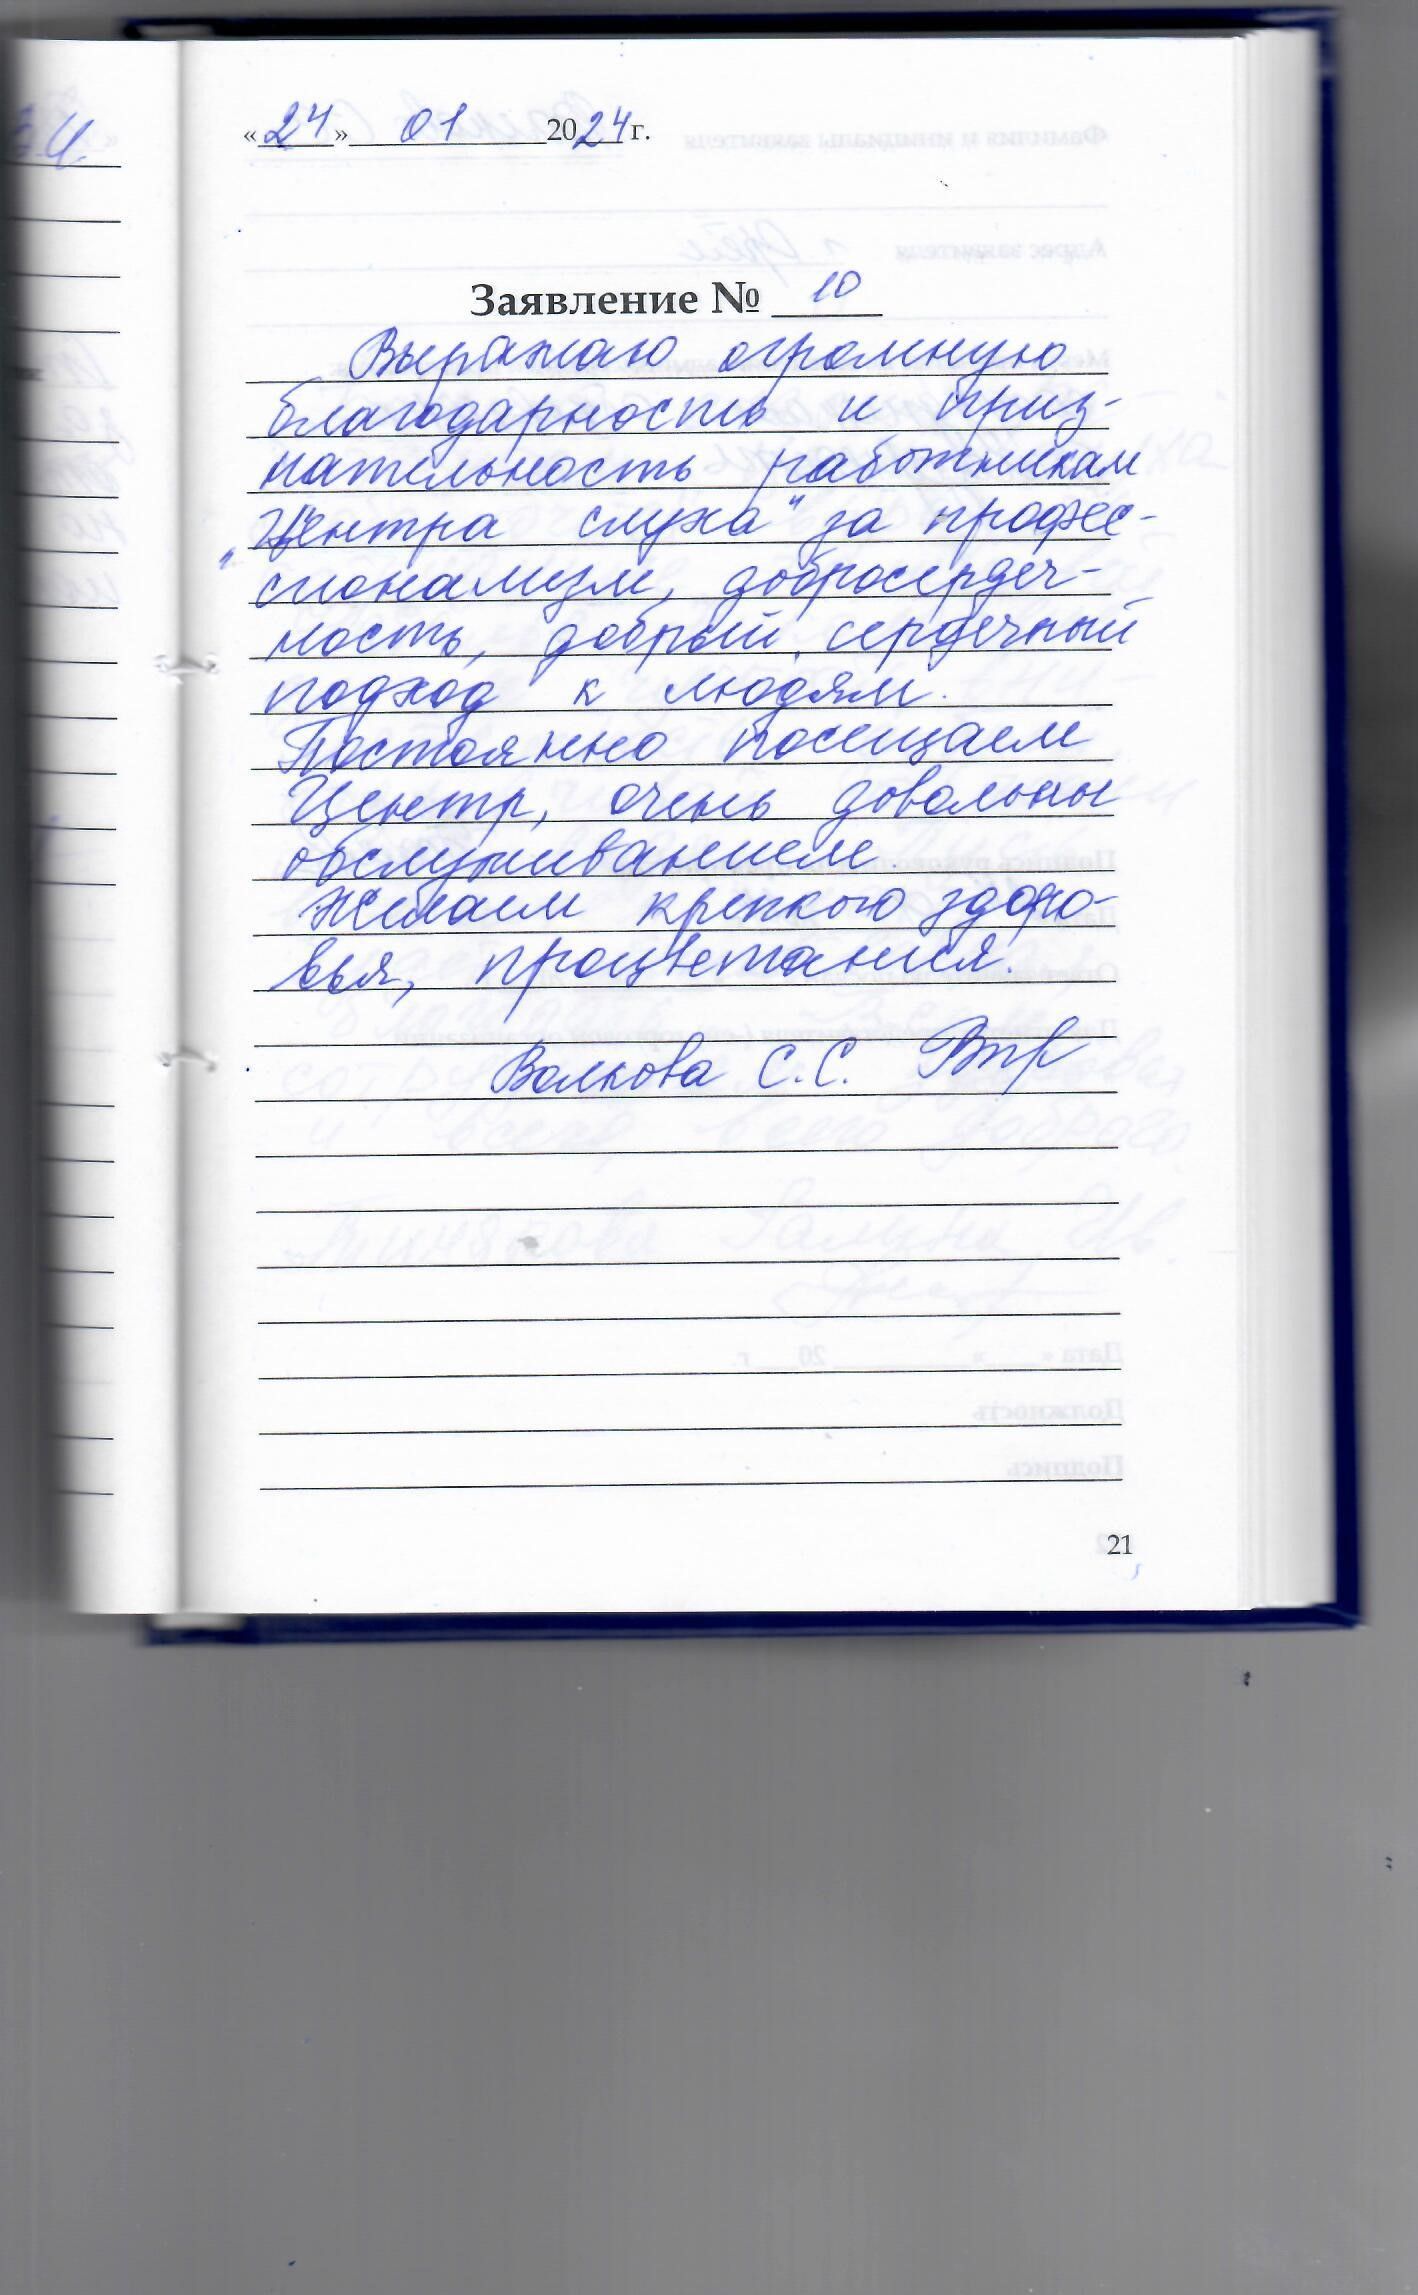 «24» 01 2024 г.
Заявление № 10
Выражаю огромную
благодарность и приз-
нательность работникам
"Центра слуха" за профес-
сионализм, добросердеч-
ность, добрый, сердечный
подход к людям.
Постоянно посещаем
Центр, очень довольны
обслуживанием.
Желаем крепкого здоро-
вья, процветания.
Волкова С.С.
21